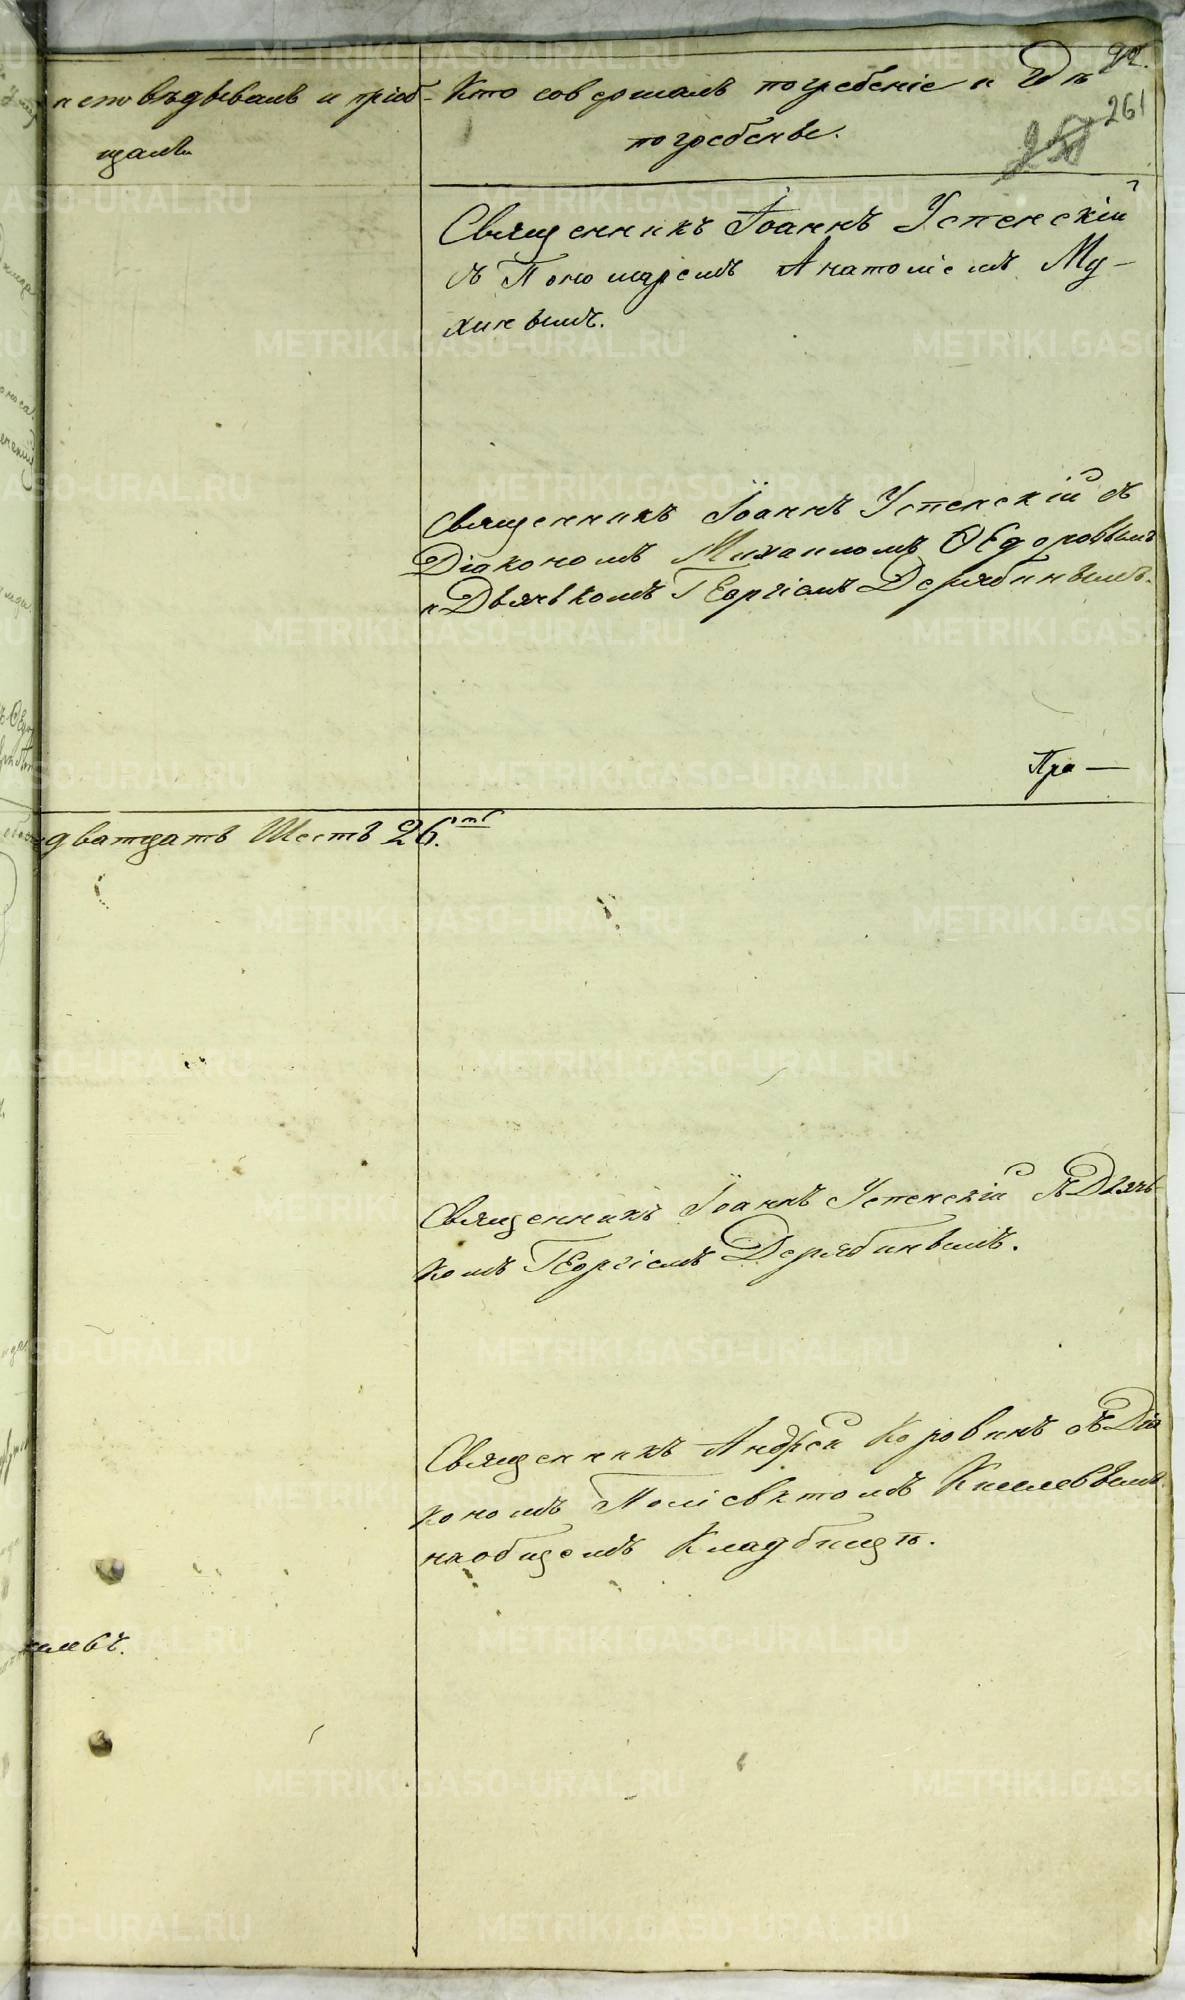 92.
261
исповѣдывалъ и пріоб-
щалъ
Кто совершалъ погребеніе и Гдѣ
погребены.
Священникъ Іоаннъ Успенскій
съ Пономаремъ Анатоліемъ Му-
хинымъ.
Священникъ Іоаннъ Успенскій съ
Діакономъ Михаиломъ Ѳедоровымъ
и Дьячькомъ Георгіемъ Дерябинымъ.
Пра-
дватцать Шесть 26.
Священникъ Іоаннъ Успенскій съ Дьячь-
комъ Георгіемъ Дерябинымъ.
Священникъ Андрей Коровинъ съ Діа
кономъ Поліевктомъ Киселевымъ
на общемъ Кладбищѣ.
METRIKI.GASO-URAL.RU